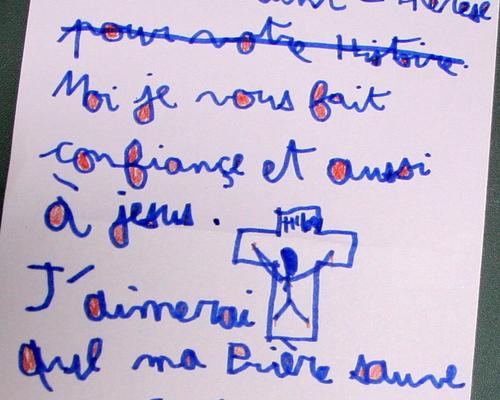 pour votre Histoire.
Moi je vous fait
confiançe et aussi
à jesus.
J'aimerai
quel ma Prière sauve